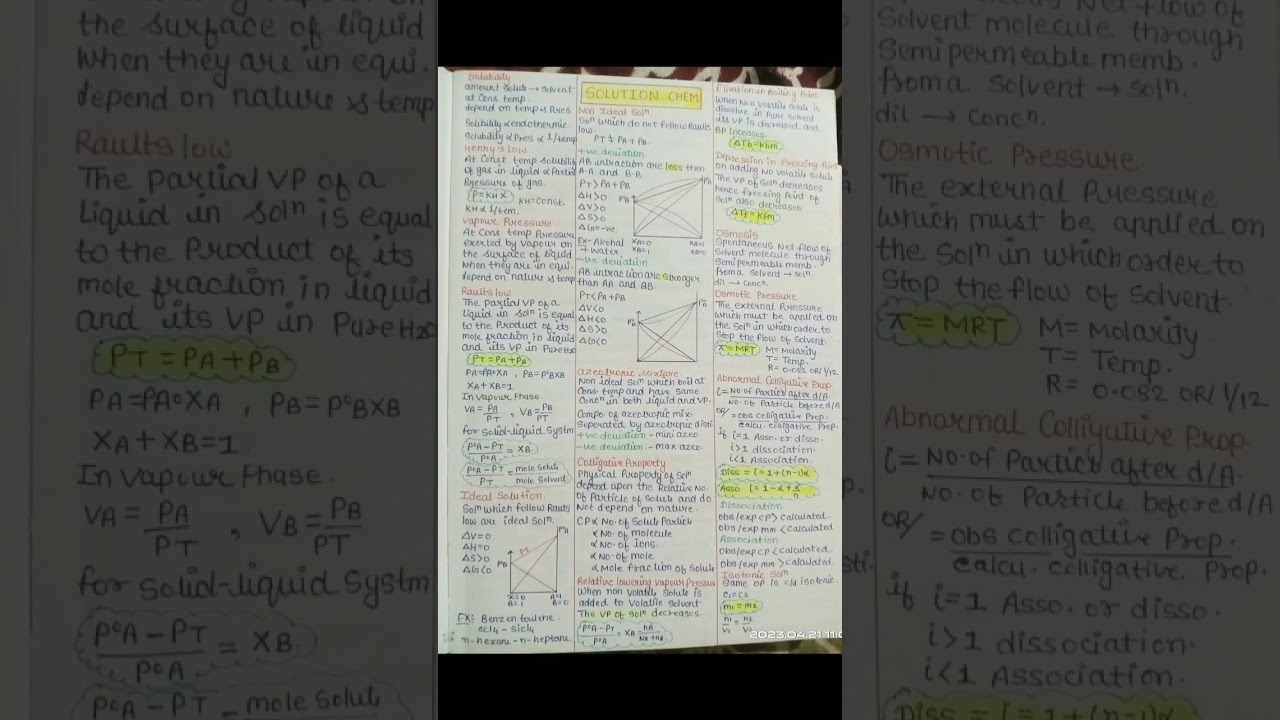 Solubility
amount Solute → Solvent
at Cons temp.
depend on temp & Pres
Solubility α endothermic.
Solubility α Pres α 1/temp
Henry's Low
At Const temp solubility
of gas in liquid α Partial
Pressure of gas.
P = KH X
KH = Const.
KH α 1/tem.
Vapour Pressure.
At Cons temp Pressure
exerted by Vapour on
the surface of liquid
When they are in equi.
depend on nature & temp
Raults low
The partial VP of a
Liquid in Solⁿ is equal
to the Product of its
mole fraction in liquid
and its VP in Pure H2O
PT = PA + PB
PA = PA° XA , PB = P°B XB
XA + XB = 1
In Vapour Phase
VA = PA/PT , VB = PB/PT
for Solid-liquid Systm
P°A - PT / P°A = XB.
P°A - PT / PT = mole Solute / mole Solvent
Ideal Solution.
Solⁿ which follow Raults
low are ideal Solⁿ.
ΔV=0
ΔH=0
ΔS>0
ΔG<0
PT
X=0
B=1
A=1
B=0
EX: Benzen toulene.
CCl4 - SiCl4
n-hexane - n-heptane
SOLUTION CHEM
Non Ideal Solⁿ.
Solⁿ which do not follow Raults
low.
PT ≠ PA + PB.
+ve deviation
AB intraction are less then
A-A and B-B
PT > PA + PB
ΔH>0
ΔV>0
ΔS>0
ΔG=-ve
XA=0
XB=1
XA=1
XB=0
Ex- Alcohal
+ water.
-ve deviation.
AB intraction are stronger
than AA and AB.
PT < PA + PB
ΔV<0
ΔH<0
ΔS>0
ΔG<0
Azeotropic Mixture
Non ideal Solⁿ which boil at
Cons. temp and have same
Concⁿ in both liquid and VP.
Compo. of azeotropic mix.
Seperated by azeotropic disti.
+ve deviation - mini azeo.
-ve deviation - max azeo.
Colligative Property
Physical Property of Solⁿ
depend upon the Relative No.
of Particle of Solute and do
Not depend on nature.
CP α No. of Solute Particle
α No. of molecule
α No. of ions.
α No. of mole
α Mole fraction of Solute
Relative lowering vapour Pressure
When non volatile Solute is
added to Volatile Solvent
The VP of Solⁿ decreases.
P°A - PT / P°A = XB = nB / NA + nB
Elivation in Boiling Point
When Non Volatile Solute is
dissolve in Pure Solvent
its VP is decreased and
BP Inceases.
ΔTb = Kbm
Depression in Freezing Point
on adding No volatile Solute
The VP of Solⁿ decreases
hence freezing Point of
Solⁿ also decreases
ΔTf = Kfm
Osmosis
Spontaneous Net flow of
Solvent molecule through
Semipermeable memb.
from a solvent → solⁿ.
dil → concⁿ.
Osmotic Pressure.
The external Pressure
which must be applied on
the Solⁿ in which order to
Stop the flow of Solvent.
π = MRT
M = Molarity
T = Temp.
R = 0.082 OR 1/12
Abnormal Colligative Prop
i = No. of Particls after d/A / No. of Particle before d/A
OR = obs colligative Prop. / calcu. colligative Prop.
if i=1 Asso. or disso.
i>1 dissociation.
i<1 Association.
Diss = i = 1+(n-1)α
Asso i = 1-α+α/n
Dissociation
obs/exp CP > calculated.
obs/exp mm < calculated
Association
obs/exp CP < calculated
obs/exp mm > calculated
Isotonic Solⁿ
Same OP is c/d isotonic.
C1 = C2
m1 = m2
n1/V1 = n2/V2
2023.04.21 11:0